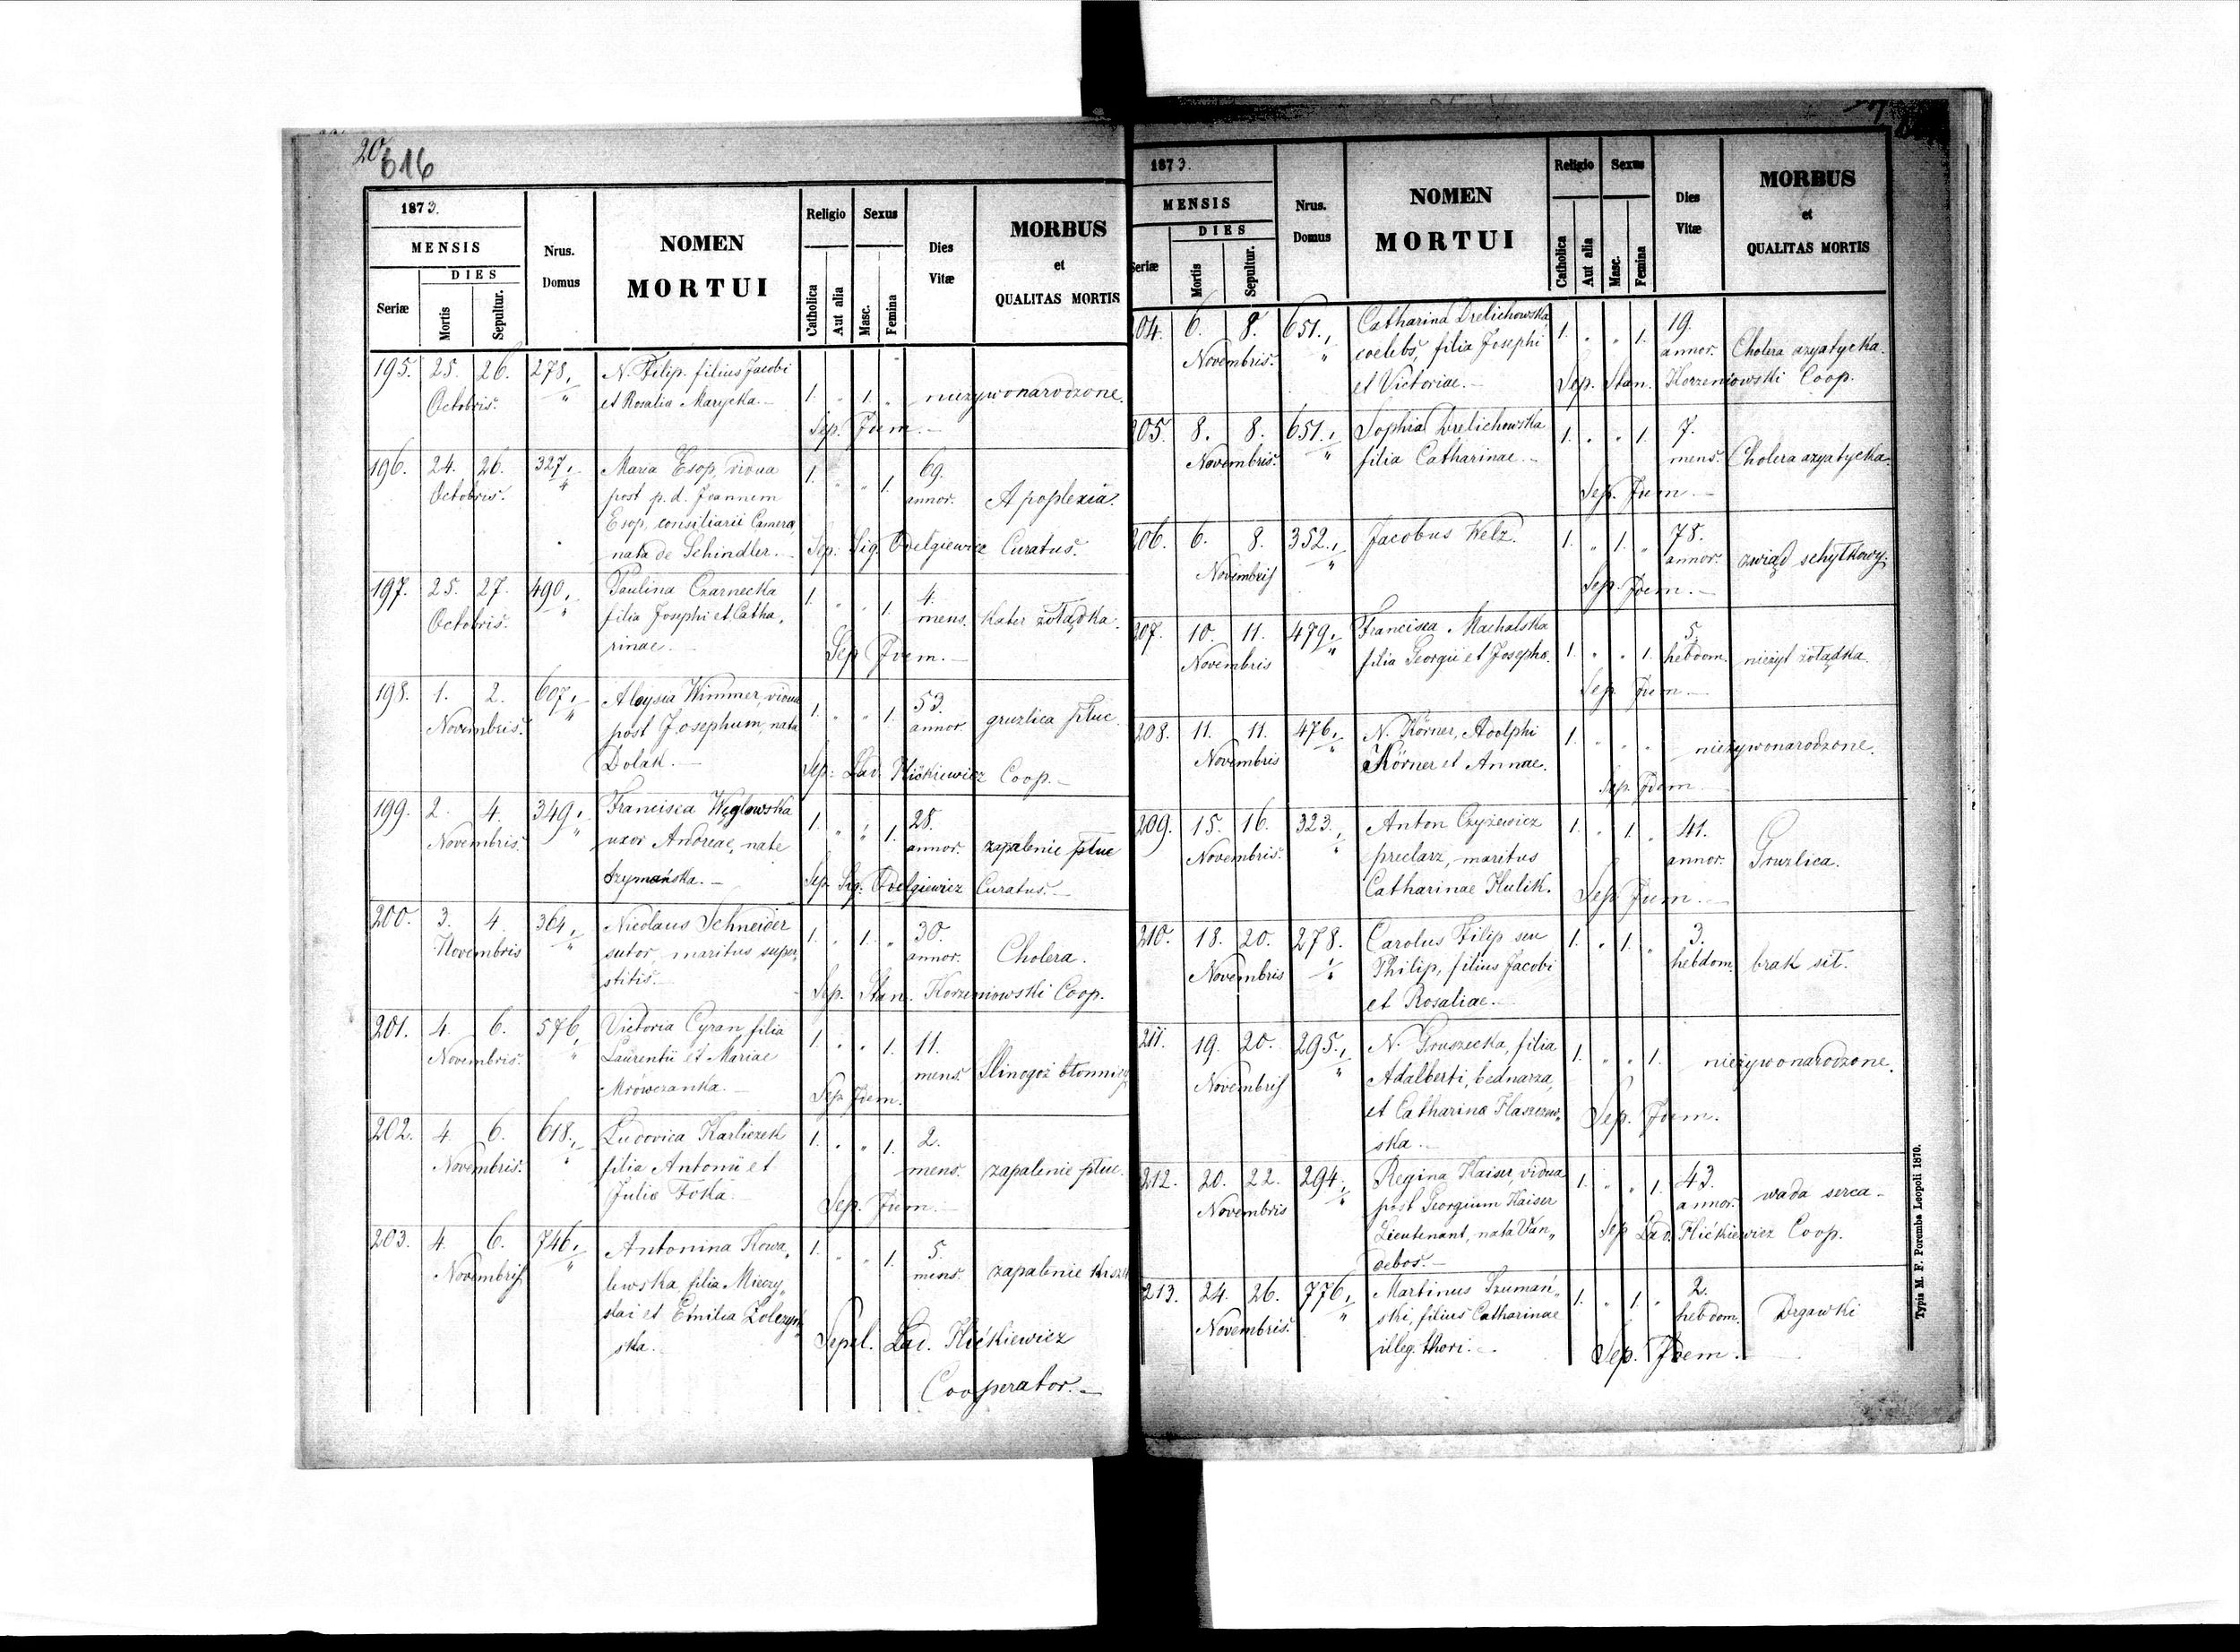 20
616
1873.
MENSIS
DIES
Seriæ
Mortis
Sepultur.
Nrus.
Domus
NOMEN
MORTUI
Religio
Sexus
Catholica
Aut alia
Masc.
Femina
Dies
Vitæ
MORBUS
et
QUALITAS MORTIS
195. 25. 26. 278. N. Filip. filius Jacobi
Octobris. et Rosalia Marycka. 1. „ 1. „ nieżywonarodzone.
Sep. Idem.
196. 24. 26. 327. Maria Esop, vidua 1. „ „ 1. 69.
Octobris. post p.d. Joannem annor. Apoplexia.
Esop, consiliarii Camera,
nata de Schindler. Sep. Sig. Odelgiewicz Curatus.
197. 25. 27. 490. Paulina Czarnecka 1. „ „ 1. 4.
Octobris. filia Josephi et Catha, mens. Kater żołądka.
rinae. Sep. Idem.
198. 1. 2. 607. Aloysia Wimmer, vidua 1. „ „ 1. 53.
Novembris. post Josephum, nata annor. gruzlica płuc.
Dolak. Sep. Lad. Klićkiewicz Coop.
199. 2. 4. 349. Francisca Węglowska 1. „ „ 1. 28.
Novembris. uxor Andreae, nate annor. zapalenie płuc
Szymańska. Sep. Sig. Odelgiewicz Curatus.
200. 3. 4. 364. Nicolaus Schneider 1. „ 1. „ 30.
Novembris sutor, maritus super„ annor. Cholera.
stitis. Sep. Stan. Korzeniowski Coop.
201. 4. 6. 576. Victoria Cyran filia 1. „ „ 1. 11.
Novembris. Laurentii et Mariae mens.
Mrówczanka. Sep. Idem.
202. 4. 6. 618. Ludovica Karliczek 1. „ „ 1. 2.
Novembris. filia Antonii et mens. zapalenie płuc.
Julia Foka. Sep. Idem.
203. 4. 6. 746. Antonina Kowa„ 1. „ „ 1. 5.
Novembris lewska filia Mieczy„ mens. zapalenie
slai et Emilia Zolczyń„
ska. Sepel. Lad. Klićkiewicz
Cooperator.
1873.
MENSIS
DIES
Seriæ
Mortis
Sepultur.
Nrus.
Domus
NOMEN
MORTUI
Religio
Sexus
Catholica
Aut alia
Masc.
Femina
Dies
Vitæ
MORBUS
et
QUALITAS MORTIS
204. 6. 8. 651. Catharina Drelichowska, 1. „ „ 1. 19.
Novembris. coelebs, filia Josephi annor. Cholera azyatycka.
et Victoriae. Sep. Stan. Korzeniowski Coop.
205. 8. 8. 651. Sophia Drelichowska 1. „ „ 1. 7.
Novembris. filia Catharinae. mens. Cholera azyatycka.
Sep. Idem.
206. 6. 8. 352. Jacobus Welz. 1. „ 1. „ 78.
Novembris annor. zwiąd schyłkowy.
Sep. Idem.
207. 10. 11. 479. Francisca Machalska 1. „ „ 1. 5.
Novembris filia Georgii et Josepha. hebdom. nieżyt żołądka.
Sep. Idem.
208. 11. 11. 476. N. Körner, Adolphi 1. „ „ „ nieżywonarodzone.
Novembris Körner et Annae.
Sep. Idem
209. 15. 16. 323. Anton Czyżewicz 1. „ 1. „ 41.
Novembris. preclarz, maritus annor. Gruzlica.
Catharinae Kulik. Sep. Idem.
210. 18. 20. 278. Carolus Filip seu 1. „ 1. „ 3.
Novembris Philip, filius Jacobi hebdom. brak sił.
et Rosaliae.
211. 19. 20. 295. N. Gruszecka, filia 1. „ „ 1. nieżywonarodzone.
Novembris Adalberti, bednarza,
et Catharina Klaszew„
ska. Sep. Idem.
212. 20. 22. 294. Regina Kaiser, vidua 1. „ „ 1. 43.
Novembris post Georgium Kaiser annor. wada serca
Lieutenant, nata Van„ Sep. Lad. Klićkiewicz Coop.
debos.
213. 24. 26. 776. Martinus Szumań„ 1. „ 1. „ 2.
Novembris. ski, filius Catharinae hebdom. Drgawki
illeg. thori. Sep. Idem.
Typis M. F. Poremba Leopoli 1870.